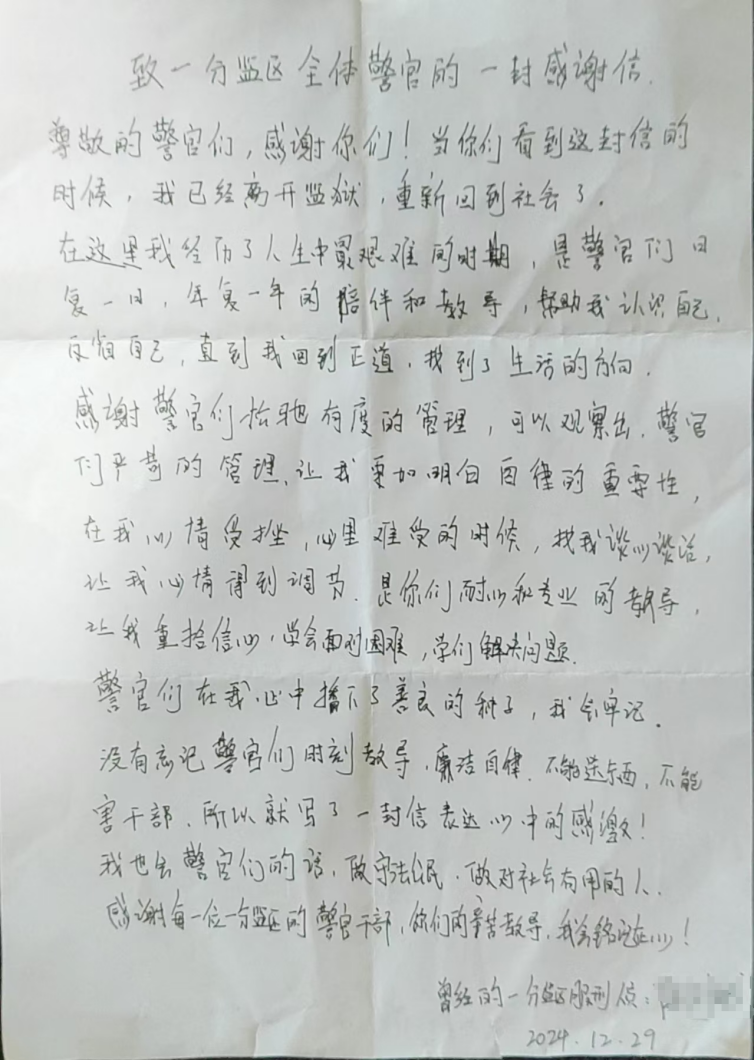 致一分监区全体警官的一封感谢信.
尊敬的警官们,感谢你们!当你们看到这封信的
时候,我已经离开监狱,重新回到社会了.
在这里我经历了人生中最艰难的时期,是警官们日
复一日,年复一年的陪伴和教导,帮助我认识自己,
反省自己,直到我回到正道,找到了生活的方向.
感谢警官们松弛有度的管理,可以观察出.警官
们严苛的管理.让我更加明白自律的重要性,
在我心情受挫,心里难受的时候,找我谈心谈话,
让我心情得到调节.是你们耐心和专业的教导,
让我重拾信心,学会面对困难,学们解决问题.
警官们在我心中播下了善良的种子,我会牢记.
没有忘记警官们时刻教导,廉洁自律.不能送东西,不能
害干部.所以就写了一封信表达心中的感激!
我也会警官们的话,做守法公民.做对社会有用的人.
感谢每一位一分监区的警官干部,你们的辛苦教导.我会铭记在心!
曾经的一分监区服刑员:
2024.12.29